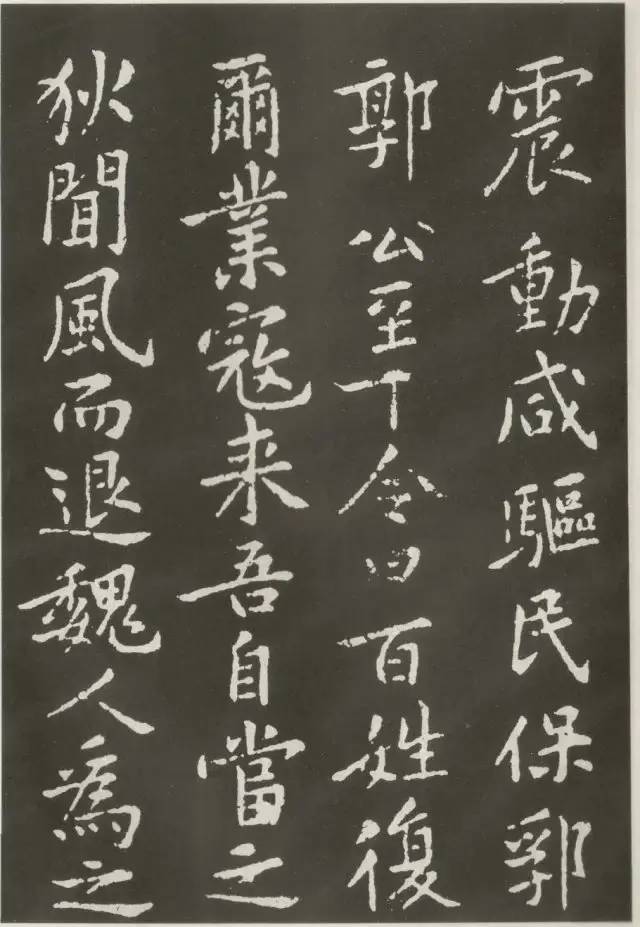 震動咸驅民保郛
郭公至下令曰百姓復
爾業寇来吾自當之
狄聞風而退魏人為之